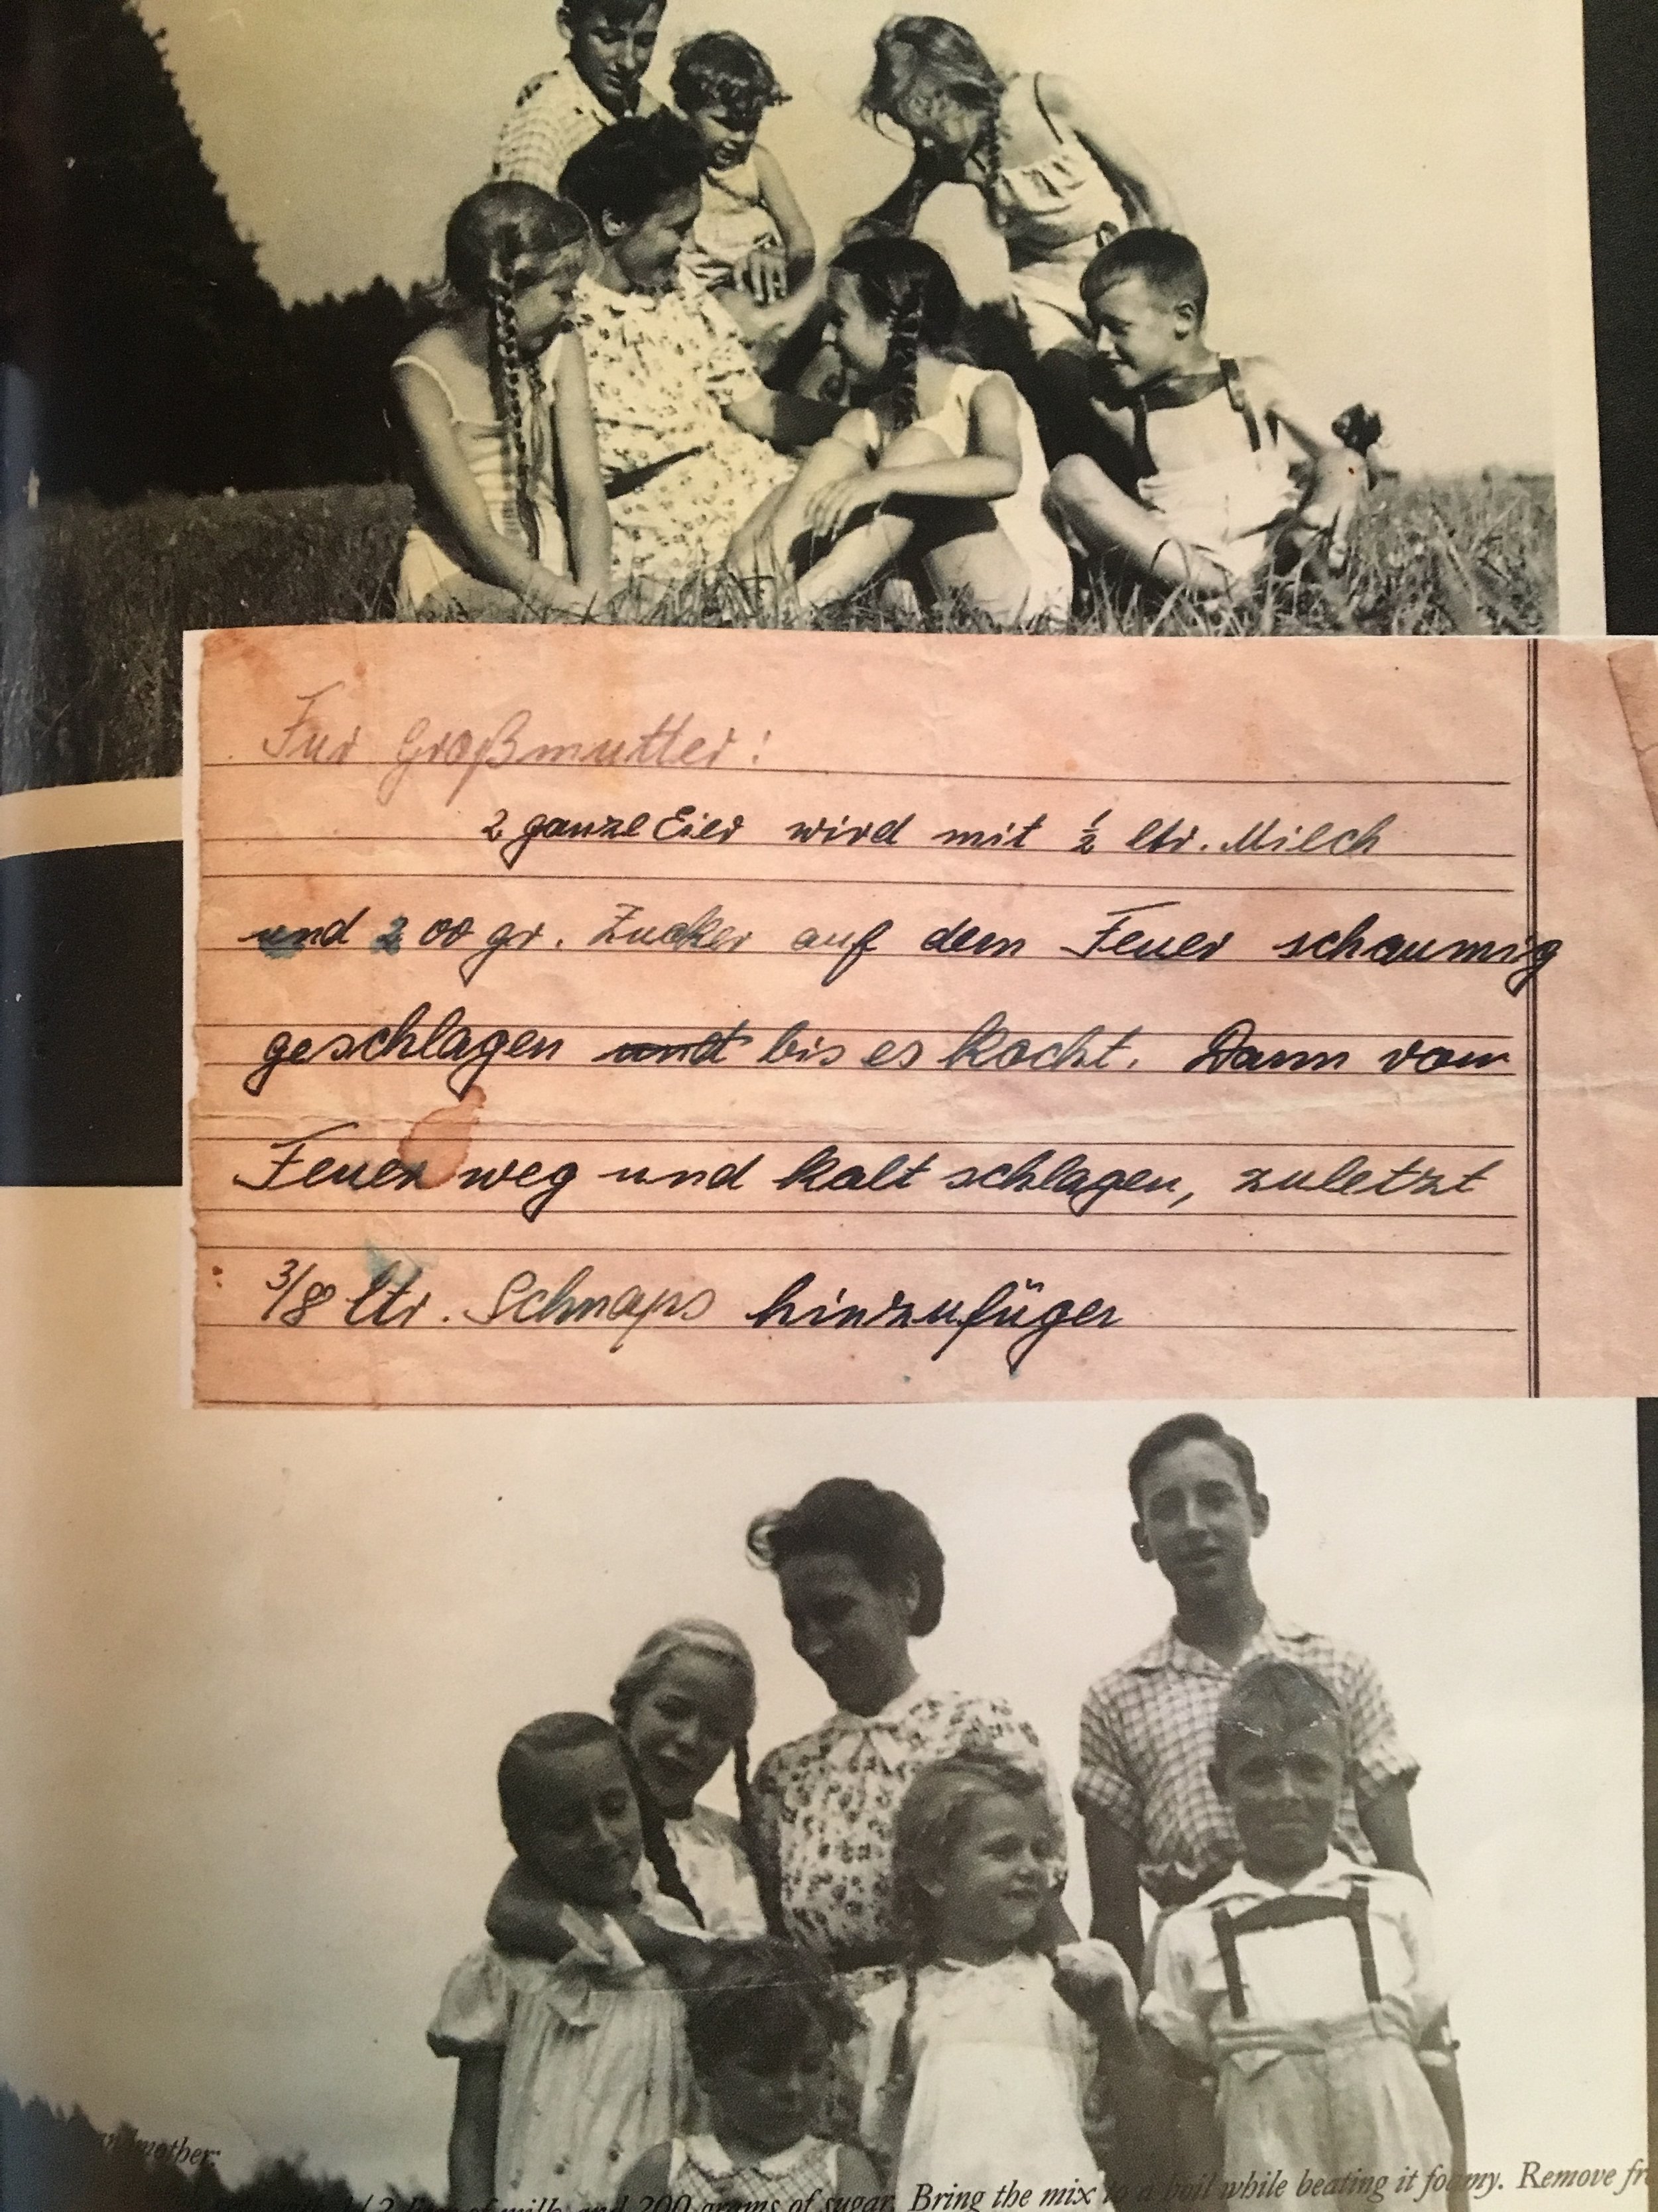 Fur Großmutter:
2 ganze Eier wird mit ½ ltr. Milch
und 200 gr. Zucker auf dem Feuer schaumig
geschlagen und bis es kocht. Dann vom
Feuer weg und kalt schlagen, zuletzt
3/8 ltr. Schnaps hinzufügen
andmother:
/2 liter of milk and 200 grams of sugar. Bring the mix to a boil while beating it foamy. Remove fr